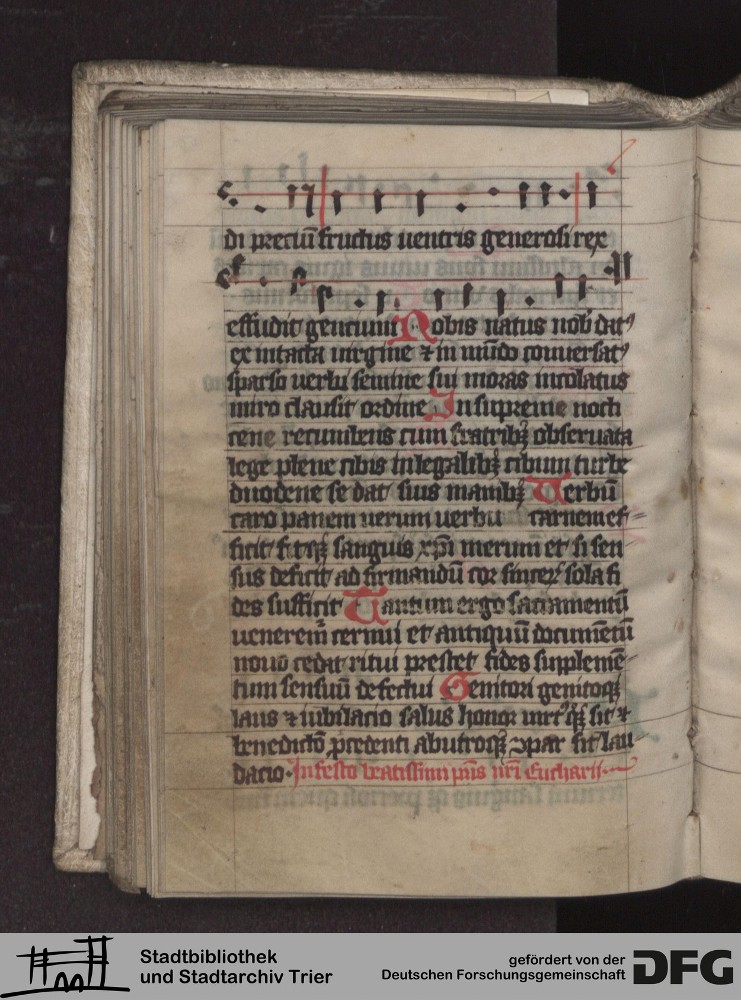 di preciū fructus uentris generosi rex
effudit gencium Nobis natus nob̄ datꝰ
ex intacta uirgine ⁊ in mūdo conuersatꝰ
sparso uerbi semine sui moras incolatus
miro clausit ordine In supreme nocti
cene recumbens cum fratribꝫ obseruata
lege plene cibis in legalibꝫ cibum turbe
duodene se dat suis manibꝫ Uerbū
caro panem uerum uerbu carnem ef-
ficit fitqꝫ sanguis xp̄i merum et si sen
sus deficit ad firmandū cor sincerꝫ sola fi
des sufficit Tantum ergo sacramentū
ueneremr̄ cernui et antiquū documētū
nouo cedat ritui prestet fides suppleme-
tum sensuū defectui Genitori genitoqꝫ
laus ⁊ iubilacio salus honor uirtꝰqꝫ sit ⁊
benedictō ꝓcedenti ab utroqꝫ ꝯpar sit lau-
dacio. In festo beatissimi pn̄s nr̄i Eucharii
Stadtbibliothek
und Stadtarchiv Trier
gefördert von der
Deutschen Forschungsgemeinschaft DFG